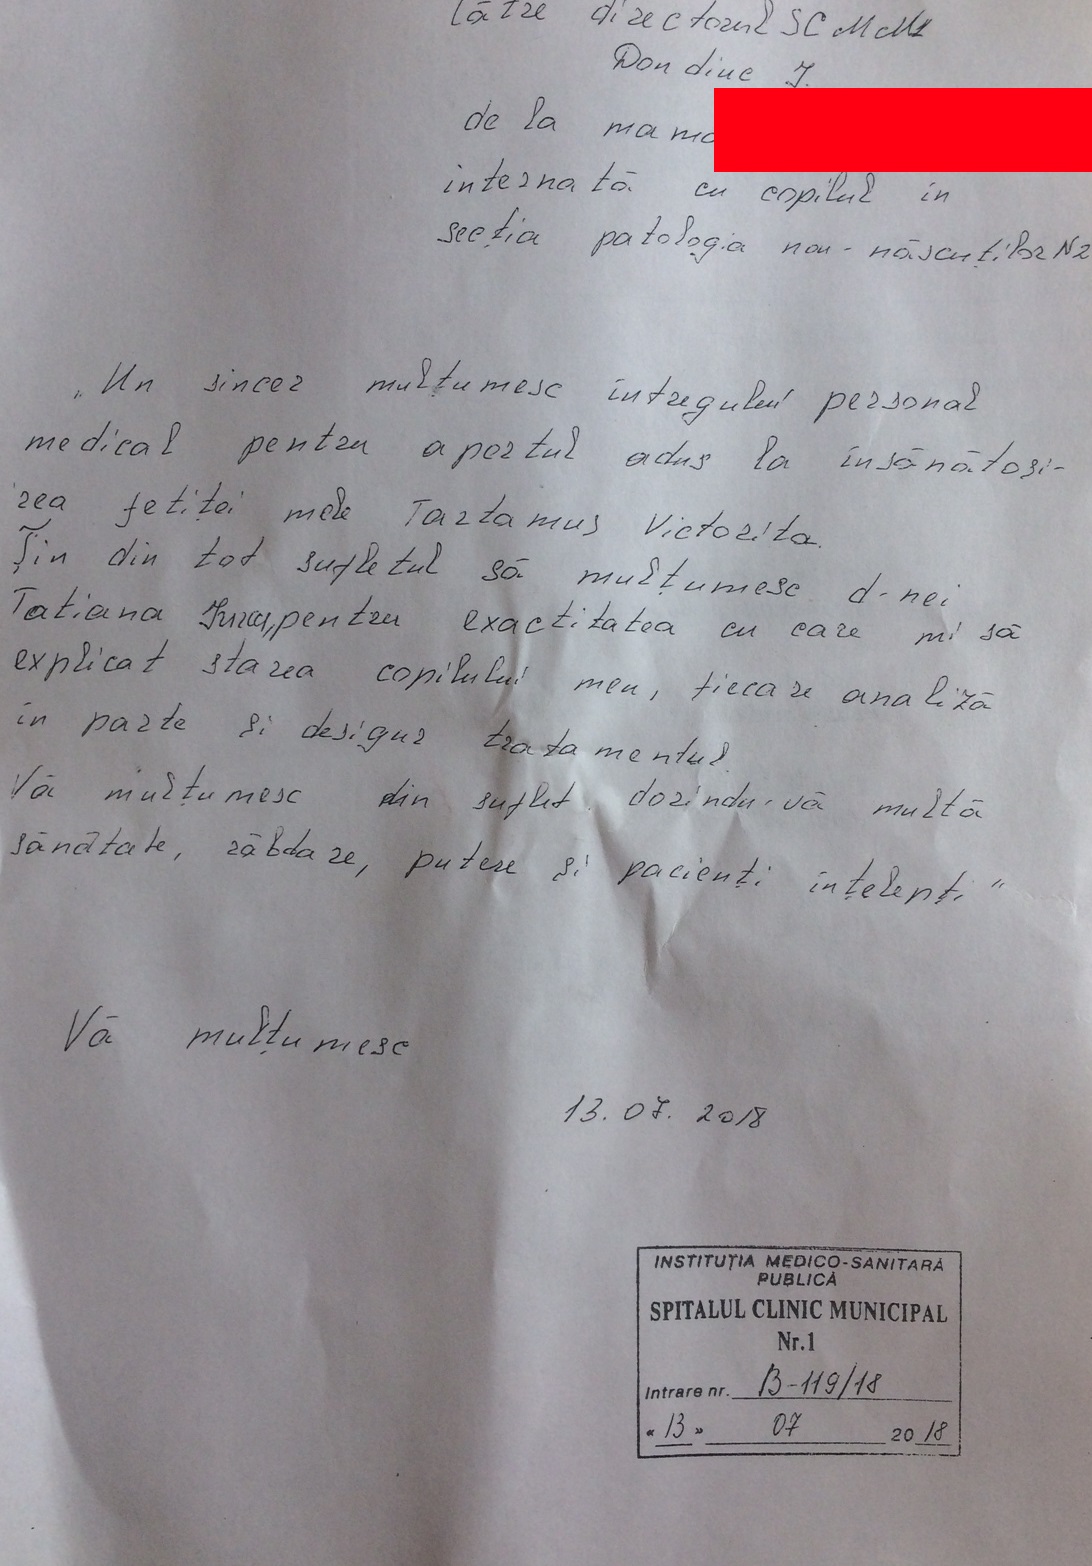 Către directorul SCMNr1
Dondiuc I.
de la mama
internată cu copilul in
secția patologia nou-născuților N2
„Un sincer mulțumesc intregului personal
medical pentru aportul adus la însănătoși-
rea fetiței mele Tartamuș Victorița.
Țin din tot sufletul să mulțumesc d-nei
Tatiana pentru exactitatea cu care mi să
explicat starea copilului meu, fiecare analiză
in parte și desigur tratamentul.
Vă mulțumesc din suflet dorindu-vă multă
sănătate, răbdare, putere și pacienți înțelepți"
Vă mulțumesc
13.07.2018
INSTITUȚIA MEDICO-SANITARĂ
PUBLICĂ
SPITALUL CLINIC MUNICIPAL
Nr.1
Intrare nr. B-119/18
« 13 » 07 20 18